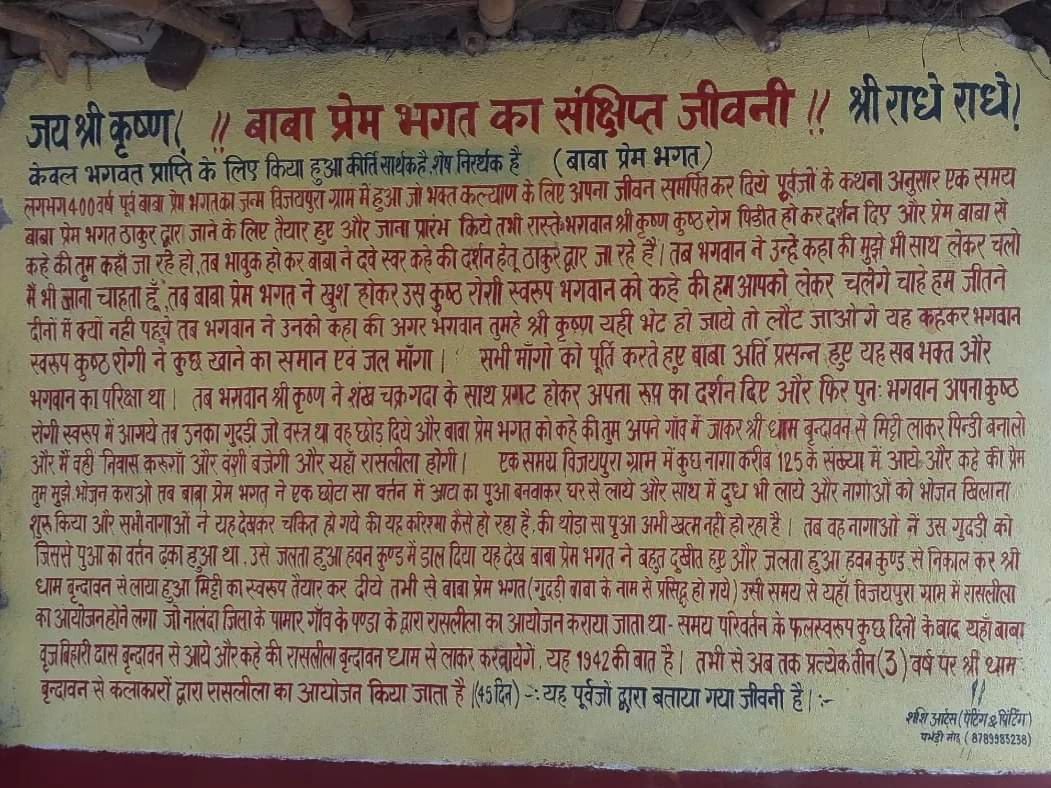 जय श्री कृष्ण! !! बाबा प्रेम भगत का संक्षिप्त जीवनी !! श्री राधे राधे!
केवल भगवत प्राप्ति के लिए किया हुआ कीर्ति सार्थक है, शेष निरर्थक है (बाबा प्रेम भगत)
लगभग 400 वर्ष पूर्व बाबा प्रेम भगत का जन्म विजयपुरा ग्राम में हुआ जो भक्त कल्याण के लिए अपना जीवन समर्पित कर दिये पूर्वजो के कथना अनुसार एक समय
बाबा प्रेम भगत ठाकुर द्वार जाने के लिए तैयार हुए और जाना प्रारंभ किये तभी रास्ते भगवान श्री कृष्ण कुष्ठ रोग पिडीत हो कर दर्शन दिए और प्रेम बाबा से
कहे की तुम कहाँ जा रहे हो, तब भावुक हो कर बाबा ने दवे स्वर कहे की दर्शन हेतू ठाकुर द्वार जा रहे हैं। तब भगवान ने उन्हे कहा की मुझे भी साथ लेकर चलो
मैं भी जाना चाहता हूँ, तब बाबा प्रेम भगत ने खुश होकर उस कुष्ठ रोगी स्वरूप भगवान को कहे की हम आपको लेकर चलेंगे चाहे हम जीतने
दीनों में क्यों नही पहूचे तब भगवान ने उनको कहा की अगर भगवान तुमहे श्री कृष्ण यही भेट हो जाये तो लौट जाओगे यह कहकर भगवान
स्वरूप कुष्ठ रोगी ने कुछ खाने का समान एवं जल माँगा। सभी माँगो को पूर्ति करते हुए बाबा अति प्रसन्न हुए यह सब भक्त और
भगवान का परिक्षा था। तब भगवान श्री कृष्ण ने शंख चक्र गदा के साथ प्रगट होकर अपना रूप का दर्शन दिए और फिर पुनः भगवान अपना कुष्ठ
रोगी स्वरूप में आगये तब उनका गुदडी जो वस्त्र था वह छोड दिये और बाबा प्रेम भगत को कहे की तुम अपने गाँव में जाकर श्री धाम बृन्दावन से मिट्टी लाकर पिन्डी बनालो
और मैं वही निवास करूगाँ और वंशी बजेगी और यहाँ रासलीला होगी। एक समय विजयपुरा ग्राम में कुछ नागा करीब 125 के संख्या में आये और कहे की प्रेम
तुम मुझे भोजन कराओ तब बाबा प्रेम भगत ने एक छोटा सा वर्त्तन में आटा का पुआ बनवाकर घर से लाये और साथ में दुध भी लाये और नागाओं को भोजन खिलाना
शुरू किया और सभी नागाओं ने यह देखकर चकित हो गये की यह करिश्मा कैसे हो रहा है, की थोडा सा पुआ अभी खत्म नही हो रहा है। तब वह नागाओं नें उस गुदडी को
जिससे पुआ का वर्त्तन ढका हुआ था, उसे जलता हुआ हवन कुण्ड में डाल दिया यह देख बाबा प्रेम भगत ने बहुत दुखीत हुए और जलता हुआ हवन कुण्ड से निकाल कर श्री
धाम बृन्दावन से लाया हुआ मिट्टी का स्वरूप तैयार कर दीये तभी से बाबा प्रेम भगत (गुदडी बाबा के नाम से प्रसिद्ध हो गये) उसी समय से यहाँ विजयपुरा ग्राम में रासलीला
का आयोजन होने लगा जो नालंदा जिला के पामार गाँव के पण्डा के द्वारा रासलीला का आयोजन कराया जाता था - समय परिवर्तन के फलस्वरूप कुछ दिनो के बाद यहाँ बाबा
वृज बिहारी दास बृन्दावन से आये और कहे की रासलीला बृन्दावन धाम से लाकर करवायेगें, यह 1942 की बात है। तभी से अब तक प्रत्येक तीन (3) वर्ष पर श्री धाम
बृन्दावन से कलाकारों द्वारा रासलीला का आयोजन किया जाता है (45 दिन) -: यह पूर्वजो द्वारा बताया गया जीवनी है। :-
शशि आर्टस (पेंटिंग & प्रिंटिंग)
मोड़ (8789985238)